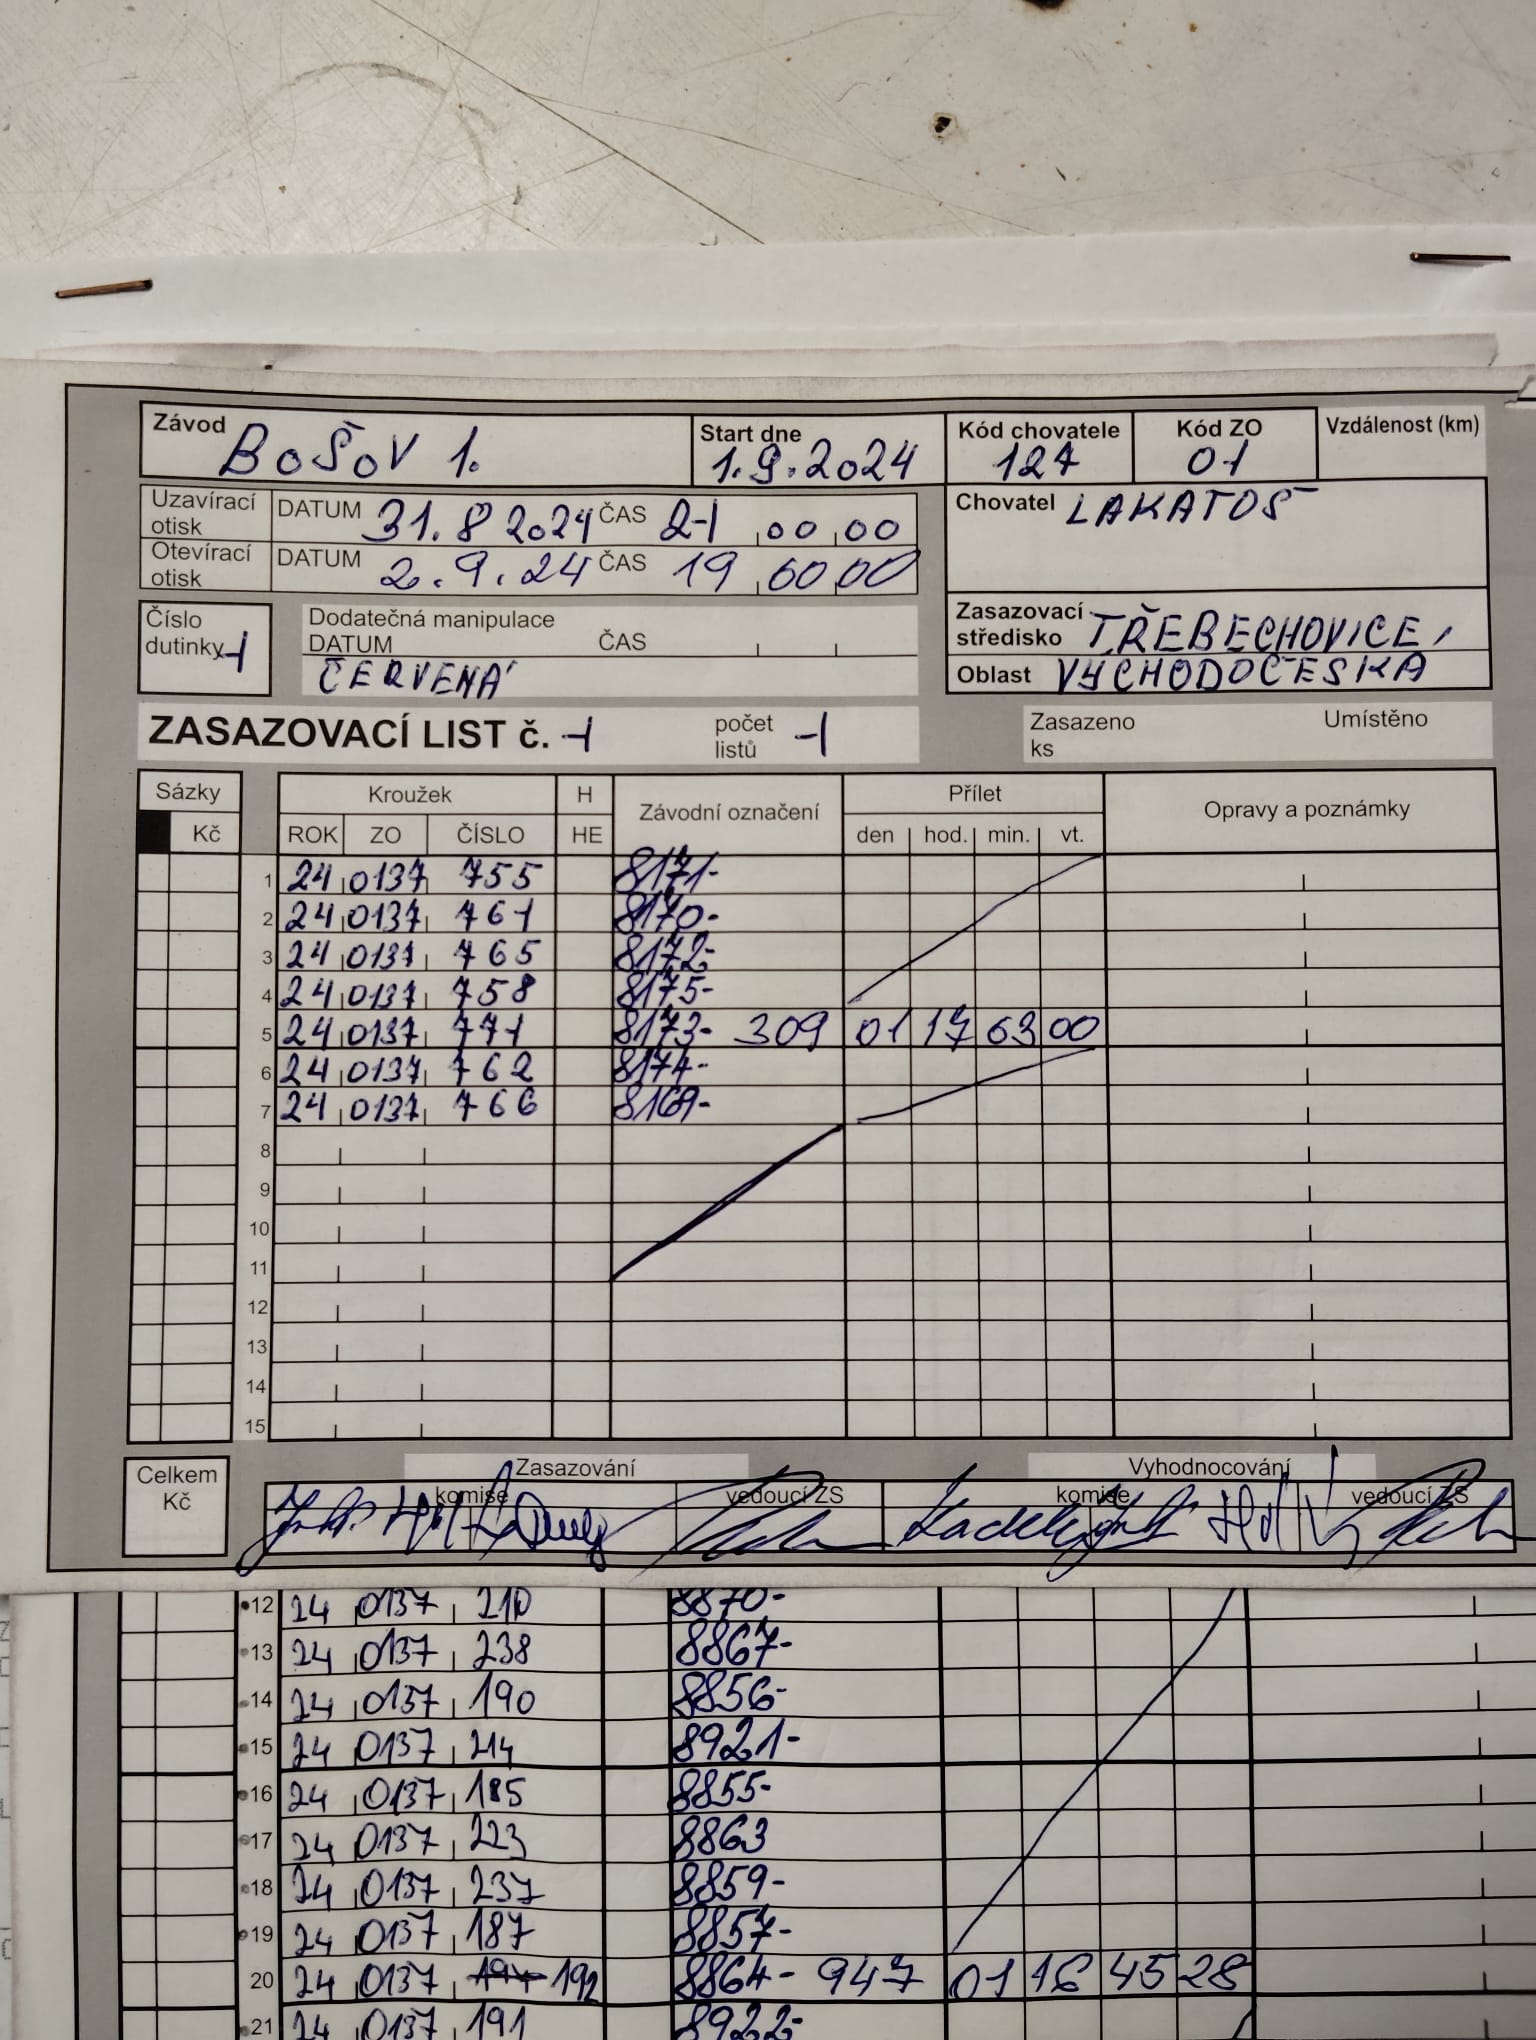 Závod BOŠOV 1. Start dne 1.9.2024 Kód chovatele 127 Kód ZO 01 Vzdálenost (km)
Uzavírací otisk DATUM 31.8 2024 ČAS 21 00 00
Chovatel LAKATOŠ
Otevírací otisk DATUM 2.9.24 ČAS 19 00 00
Číslo dutinky 1
Dodatečná manipulace
DATUM ČAS
ČERVENÁ
Zasazovací středisko TŘEBECHOVICE
Oblast VÝCHODOČESKÁ
ZASAZOVACÍ LIST č. 1 počet listů 1 Zasazeno ks Umístěno
Sázky Kroužek H Závodní označení Přílet Opravy a poznámky
Kč ROK ZO ČÍSLO HE den hod. min. vt.
1 24 0137 755 8171-
2 24 0137 761 8170-
3 24 0137 765 8172-
4 24 0137 758 8175-
5 24 0137 771 8173- 309 01 17 03 00
6 24 0137 762 8174-
7 24 0137 766 8169-
8
9
10
11
12
13
14
15
Celkem Kč Zasazování Vyhodnocování
komise vedoucí ZS komise vedoucí ZS
12 24 0137 210 8870-
13 24 0137 238 8867-
14 24 0137 190 8856-
15 24 0137 214 8921-
16 24 0137 185 8855-
17 24 0137 223 8863
18 24 0137 237 8859-
19 24 0137 187 8857-
20 24 0137 192 8864- 947 01 16 45 28
21 24 0137 191 8922-